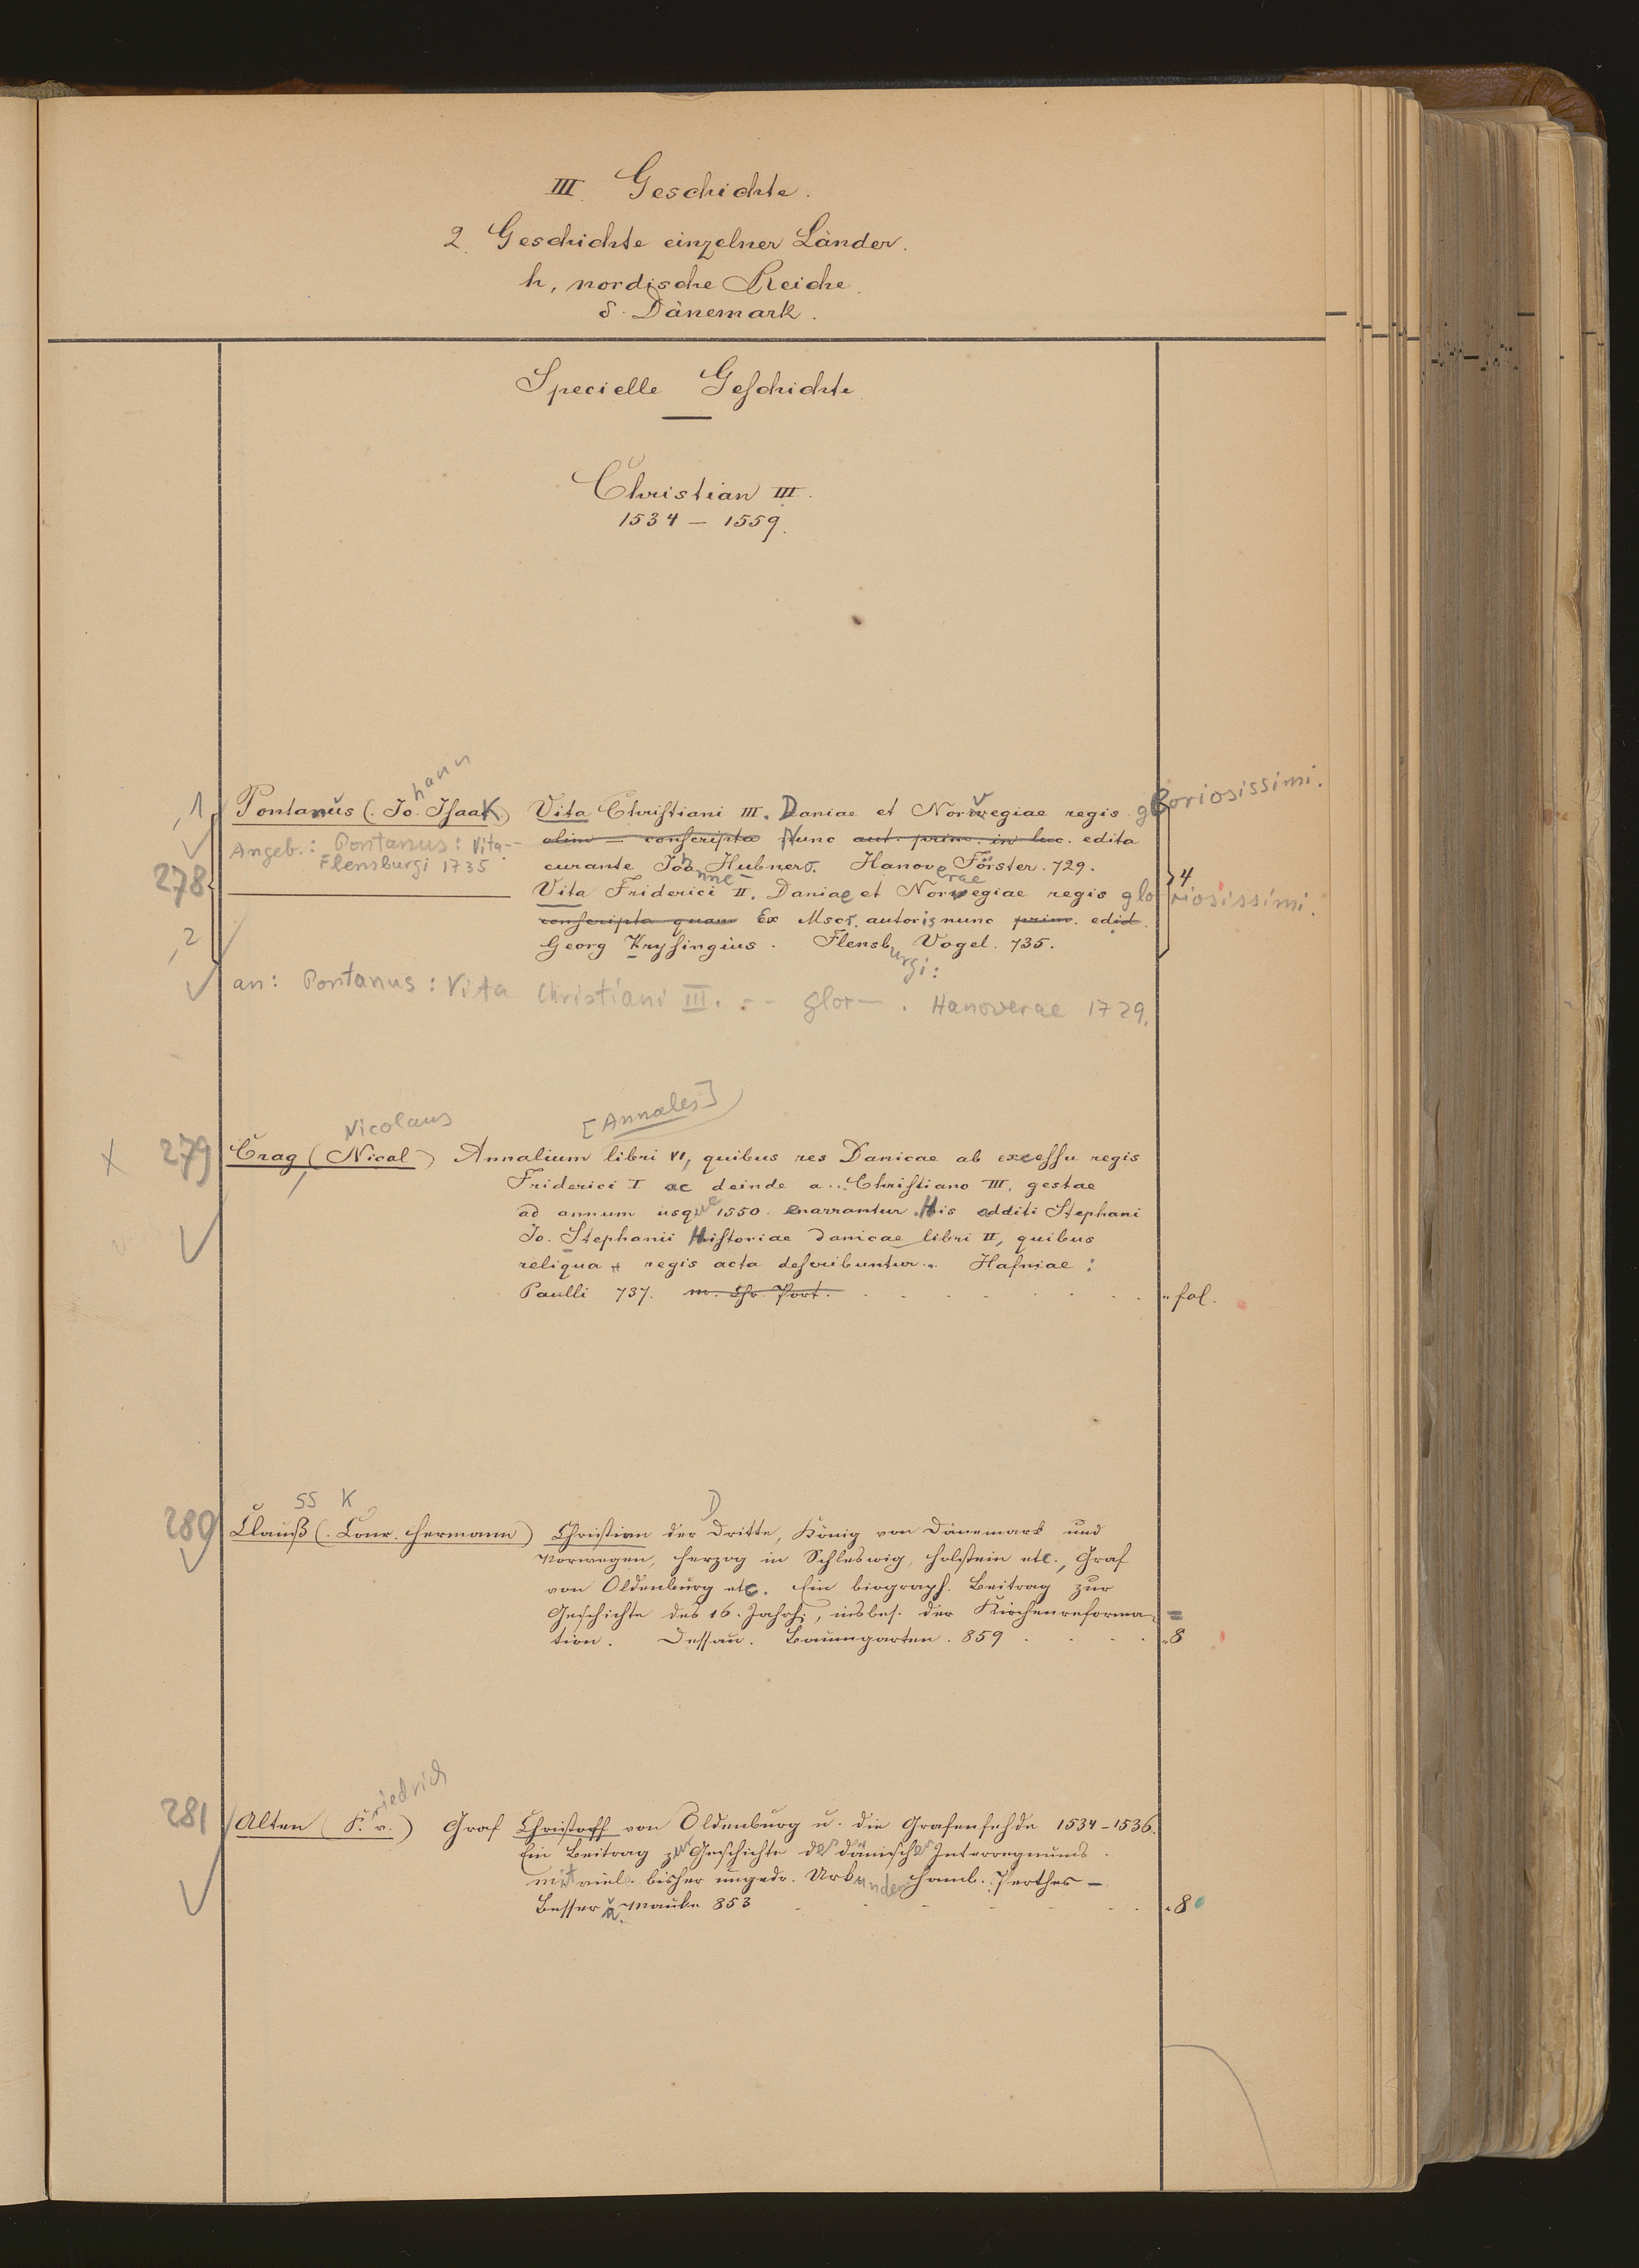 III. Geschichte.
2. Geschichte einzelner Länder.
h, nordische Reiche.
δ. Dänemark.
Specielle Geschichte.
Christian III.
1534 – 1559.
278
,1 Pontanus (Johann Isaak) Vita Christiani III. Daniae et Norvegiae regis gloriosissimi.
olim – conscripta Nunc aut. prim. in luc. edita
Angeb.: Pontanus: Vita--
Flensburgi 1735
curante Johanne Hubnero. Hanoverae Förster. 729.
,2 Vita Friderici II. Daniae et Norvegiae regis gloriosissimi. 4
conscripta quam Ex Mscr. autoris nunc prim. edid.
Georg Krysingius. Flensburgi: Vogel. 735.
an: Pontanus: Vita Christiani III. -- glor–. Hanoverae 1729.
Nicolaus [Annales]
X 279 Crag (Nicol) Annalium libri VI, quibus res Danicae ab excessu regis
Friderici I ac deinde a... Christiano III. gestae
ad annum usque 1550. enarrantur. His additi Stephani
Jo. Stephanii Historiae danicae libri II, quibus
reliqua regis acta describuntur.. Hafniae:
Paulli 737. m. Chr. Port. " fol.
ss K D
280 Clauß (Conr. Hermann) Christian der Dritte, König von Dänemark und
Norwegen, Herzog in Schleswig, Holstein etc., Graf
von Oldenburg etc. Ein biograph. Beitrag zur
Geschichte des 16. Jahrh., insbes. der Kirchenreforma=
tion. Dessau. Baumgarten. 859 . . . . "8
281 Alten (Friedrich v.) Graf Christoff von Oldenburg u. die Grafenfehde 1534–1536.
Ein Beitrag zur Geschichte des dänischen Interregnums.
mit viel. bisher ungedr. Urkunden Hamb. Perthes –
Besser u. Mauke 853 "8